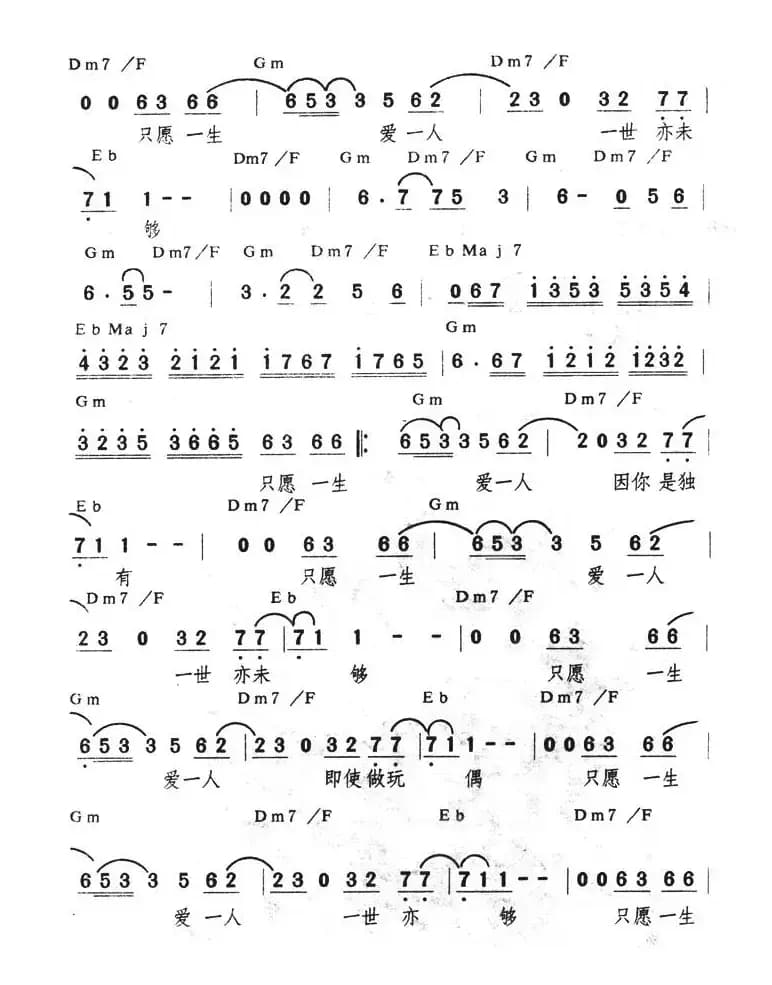 Dm7 /F Gm Dm7 /F
0 0 63 66 | 653 3 5 62 | 23 0 32 77 |
只愿 一生 爱 一人 一世 亦未
Eb Dm7 /F Gm Dm7 /F Gm Dm7 /F
71 1 - - | 0 0 0 0 | 6 · 7 75 3 | 6 - 0 5 6 |
够
Gm Dm7 /F Gm Dm7 /F EbMaj7
6 · 55 - | 3 · 2 2 5 6 | 067 1353 5354 |
EbMaj7 Gm
4323 2121 1767 1765 | 6 · 67 1212 1232 |
Gm Gm Dm7 /F
3235 3665 63 66 |: 653 3 5 62 | 2 0 32 77 |
只愿 一生 爱一人 因你 是独
Eb Dm7 /F Gm
71 1 - - | 0 0 63 66 | 653 3 5 62 |
有 只愿 一生 爱 一人
Dm7 /F Eb Dm7 /F
23 0 32 77 | 71 1 - - | 0 0 63 66 |
一世 亦未 够 只愿 一生
Gm Dm7 /F Eb Dm7 /F
653 3 5 62 | 23 0 32 77 | 71 1 - - | 0 0 63 66 |
爱 一人 即使做玩 偶 只愿 一生
Gm Dm7 /F Eb Dm7 /F
653 3 5 62 | 23 0 32 77 | 71 1 - - | 0 0 63 66 |
爱 一人 一世 亦 够 只愿 一生